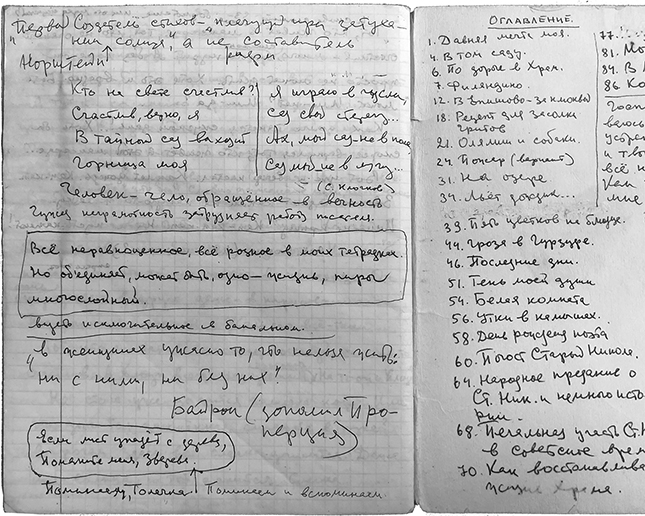 Создатель стихов – плачущий при затухании солнца", а "не составитель
Норштейн
Кто на свете счастлив?
Счастлив, верно, я
В тайной сад выходит
Горница моя
Я играю в гусли,
сад свой стерегу...
Ах, мой сад не в поле,
Сад мой не в лугу...
(С. Клычков)
Человек – чело, обращённое в вечность
Чужая неграмотность затрудняет работу
Всё неравноценное, всё разное в моих тетрадках.
Но объединяет, может быть, одно – жизнь,
многослойный.
видеть исключительное в банальном.
"в женщинах ужасно то, что нельзя жить:
ни с ними, ни без них"
Байрон (дополнил Проперция)
Если лист упадёт с дерева,
Помяните меня, Зверева.
Поминаем, Толечка
Поминаем и вспоминаем
ОГЛАВЛЕНИЕ.
1. Давняя мечта моя.
4. В том саду.
6. По дороге в Храм.
7. Филендино.
12. В
18. Рецепт для засолки
грибов
21. Олялин и собаки.
24. Пожар (вариант)
31. На озере
34. Льёт дождик...
39. Пять цветков не
44. Гроза в Гурзуфе.
46. Последние дни.
51. Тень моей души
54. Белая комната
56. Утки в камышах.
58. День рождения поэта
60. Погост Старый Никола.
64. Народное предание о
Ст. Ник. и немного исто
рии.
68. Печальная участь Ст. Н
в советское врем
70. Как восстанавлива
Храма.
77.
81. Мо
84. В
86. Ко
и тво
всё н
Как
мне